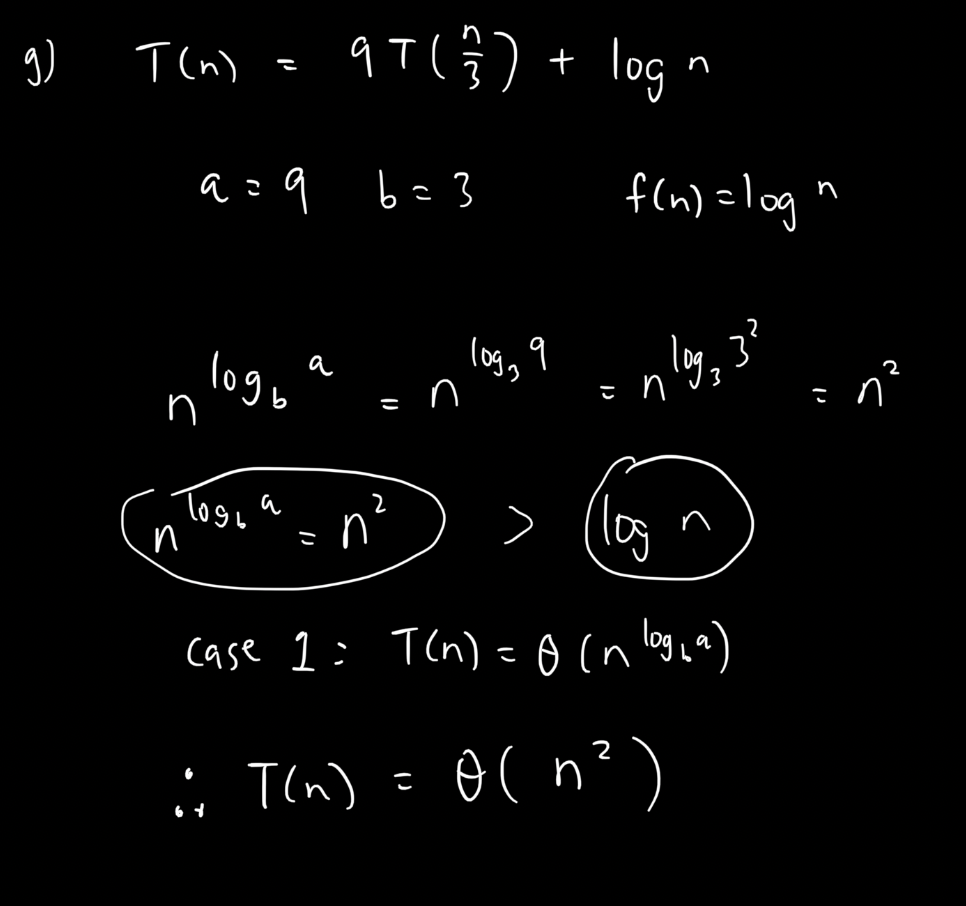 g) T(n) = 9T(n/3) + log n
a = 9 b = 3 f(n) = log n
n^(log_b a) = n^(log_3 9) = n^(log_3 3^2) = n^2
n^(log_b a) = n^2 > log n
case 1: T(n) = θ(n^(log_b a))
∴ T(n) = θ(n^2)